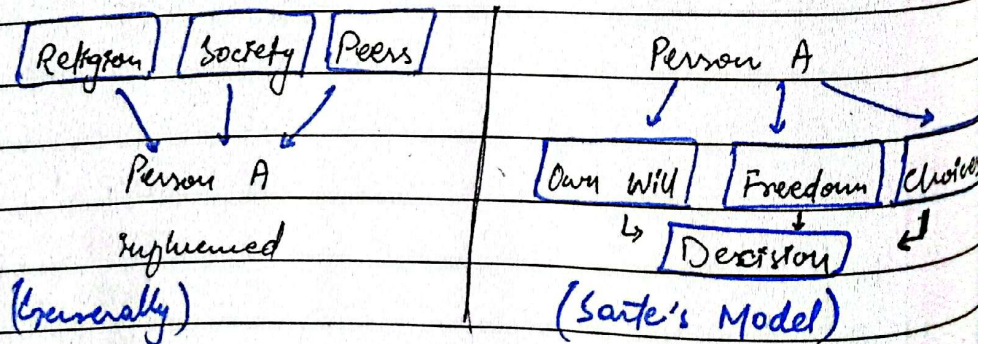 Religion Society Peers
Person A
influenced
(Generally)
Person A
Own Will Freedom Choices
Decision
(Sarte's Model)